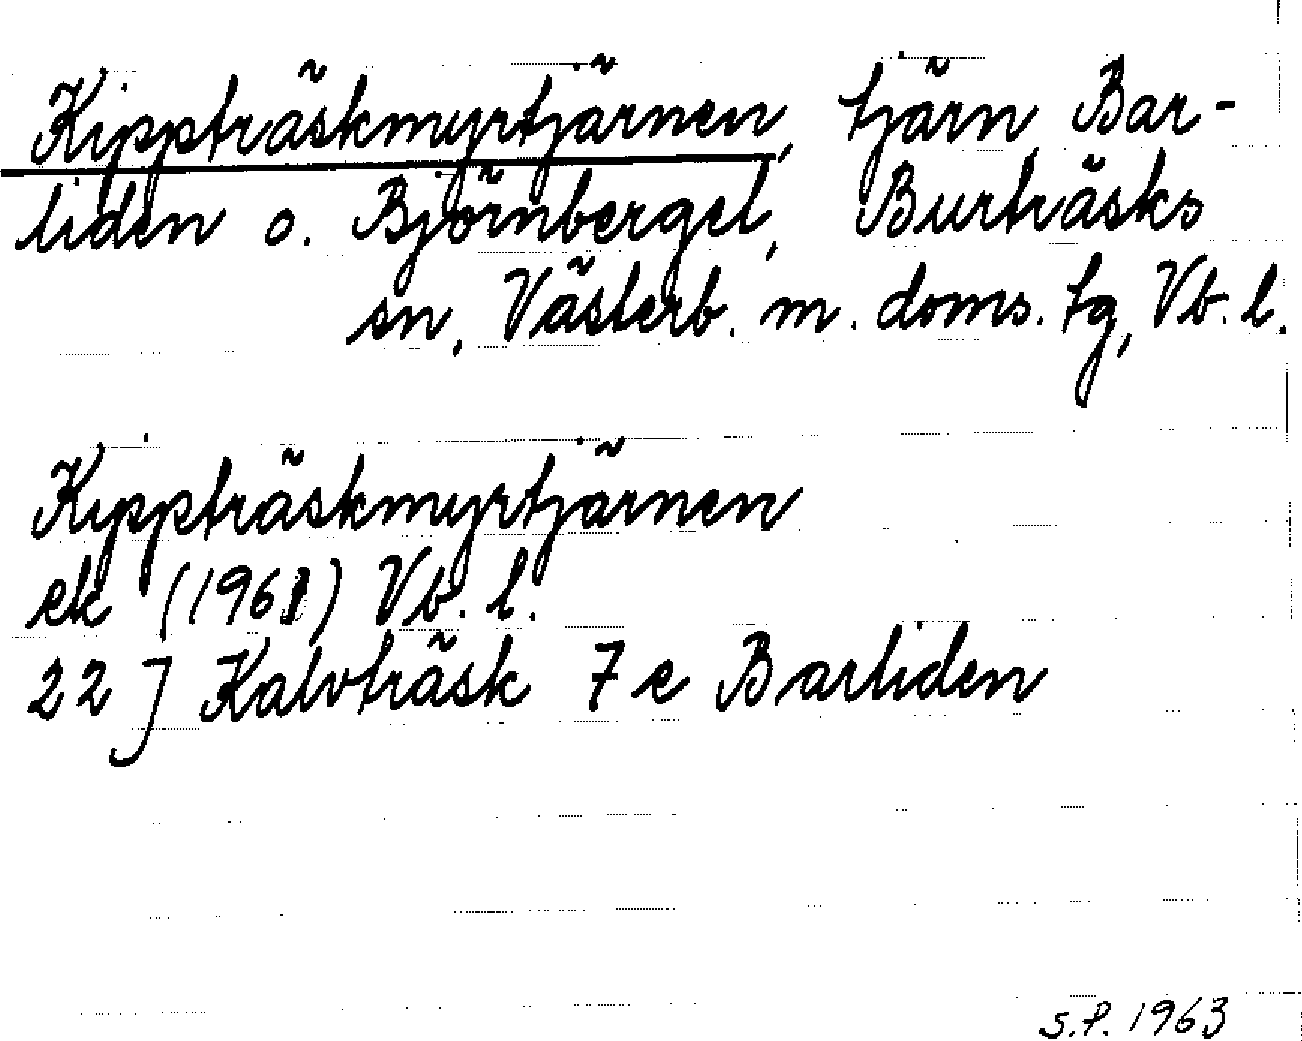 Kippträskmyrtjärnen, tjärn, Bar-
liden o. Björnberget, Burträsks
sn, Västerb. m. doms. tg, Vb. l.
Kippträskmyrtjärnen
ek (1961) Vb. l.
22 J Kalvträsk 7 e Barliden
S.P. 1963